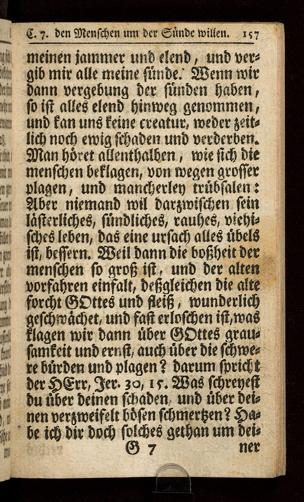 C. 7. den Menschen um der Sünde willen. 157
meinen jammer und elend, und ver-
gib mir alle meine sünde. Wenn wir
dann vergebung der sünden haben,
so ist alles elend hinweg genommen,
und kan uns keine creatur, weder zeit-
lich noch ewig schaden und verderben.
Man höret allenthalben, wie sich die
menschen beklagen, von wegen grosser
plagen, und mancherley trübsalen:
Aber niemand wil darzwischen sein
lästerliches, sündliches, rauhes, viehi-
sches leben, das eine ursach alles übels
ist, bessern. Weil dann die boßheit der
menschen so groß ist, und der alten
vorfahren einfalt, deßgleichen die alte
forcht GOttes und fleiß, wunderlich
geschwächet, und fast erloschen ist, was
klagen wir dann über GOttes grau-
samkeit und ernst, auch über die schwe-
re bürden und plagen? darum spricht
der HErr, Jer. 30, 15. Was schreyest
du über deinen schaden, und über dei-
nen verzweifelt bösen schmertzen? Ha-
be ich dir doch solches gethan um dei-
G 7 ner